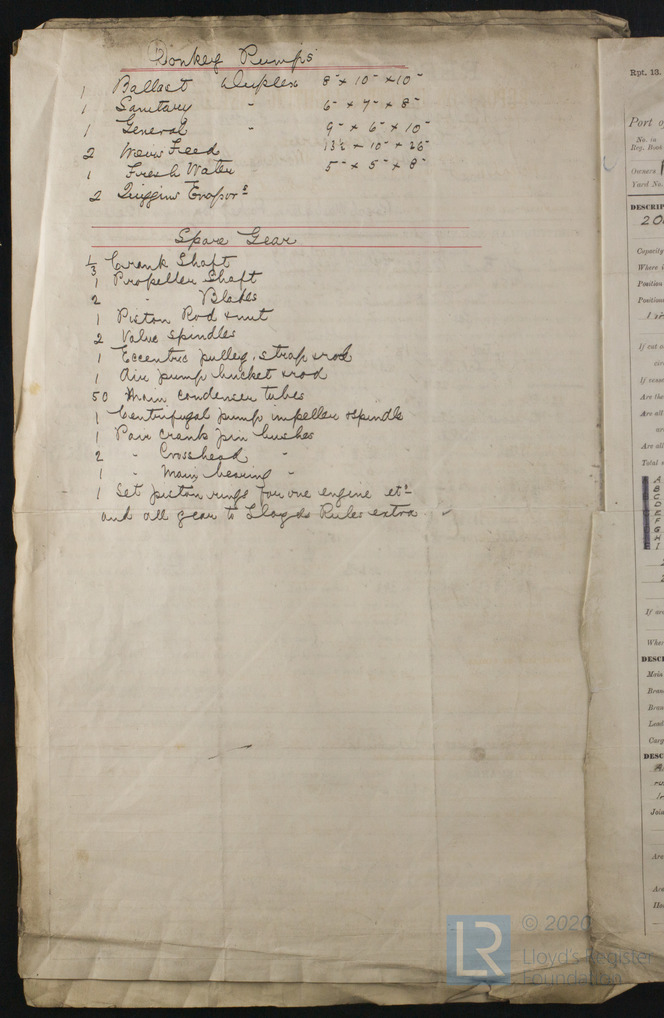 Donkey Pumps
1 Ballast Duplex 8" x 10" x 10"
1 Sanitary " 6" x 7" x 8"
1 General " 9" x 6" x 10"
2 Weirs Feed 13½ x 10" x 26"
1 Fresh Water 5" x 5" x 8"
2 Quiggins Evapors
Spare Gear
1/3 Crank Shaft
1 Propeller Shaft
2 " Blades
1 Piston Rod & nut
2 Valve Spindles
1 Eccentric pulley, strap & rod
1 Air pump bucket & rod
50 Main condenser tubes
1 Centrifugal pump impeller & spindle
1 Pair crank pin bushes
2 " Crosshead "
1 " Main bearing "
1 Set piston rings for one engine etc
and all gear to Lloyds Rules extra.
Rpt. 13.
Port of
No. in
Reg. Book
Owners
Yard No.
DESCRIP
Capacity
Where i
Position
Position
If cut o
If vessel
Are the
Are all
are
Are all
Total
A
B
C
D
E
F
G
H
I
If are
Wher
DESCR
Main
Bran
Bran
Lead
Carg
DESC
Join
Are
Are
Ho
LR
© 2020
Lloyd's Register
Foundation